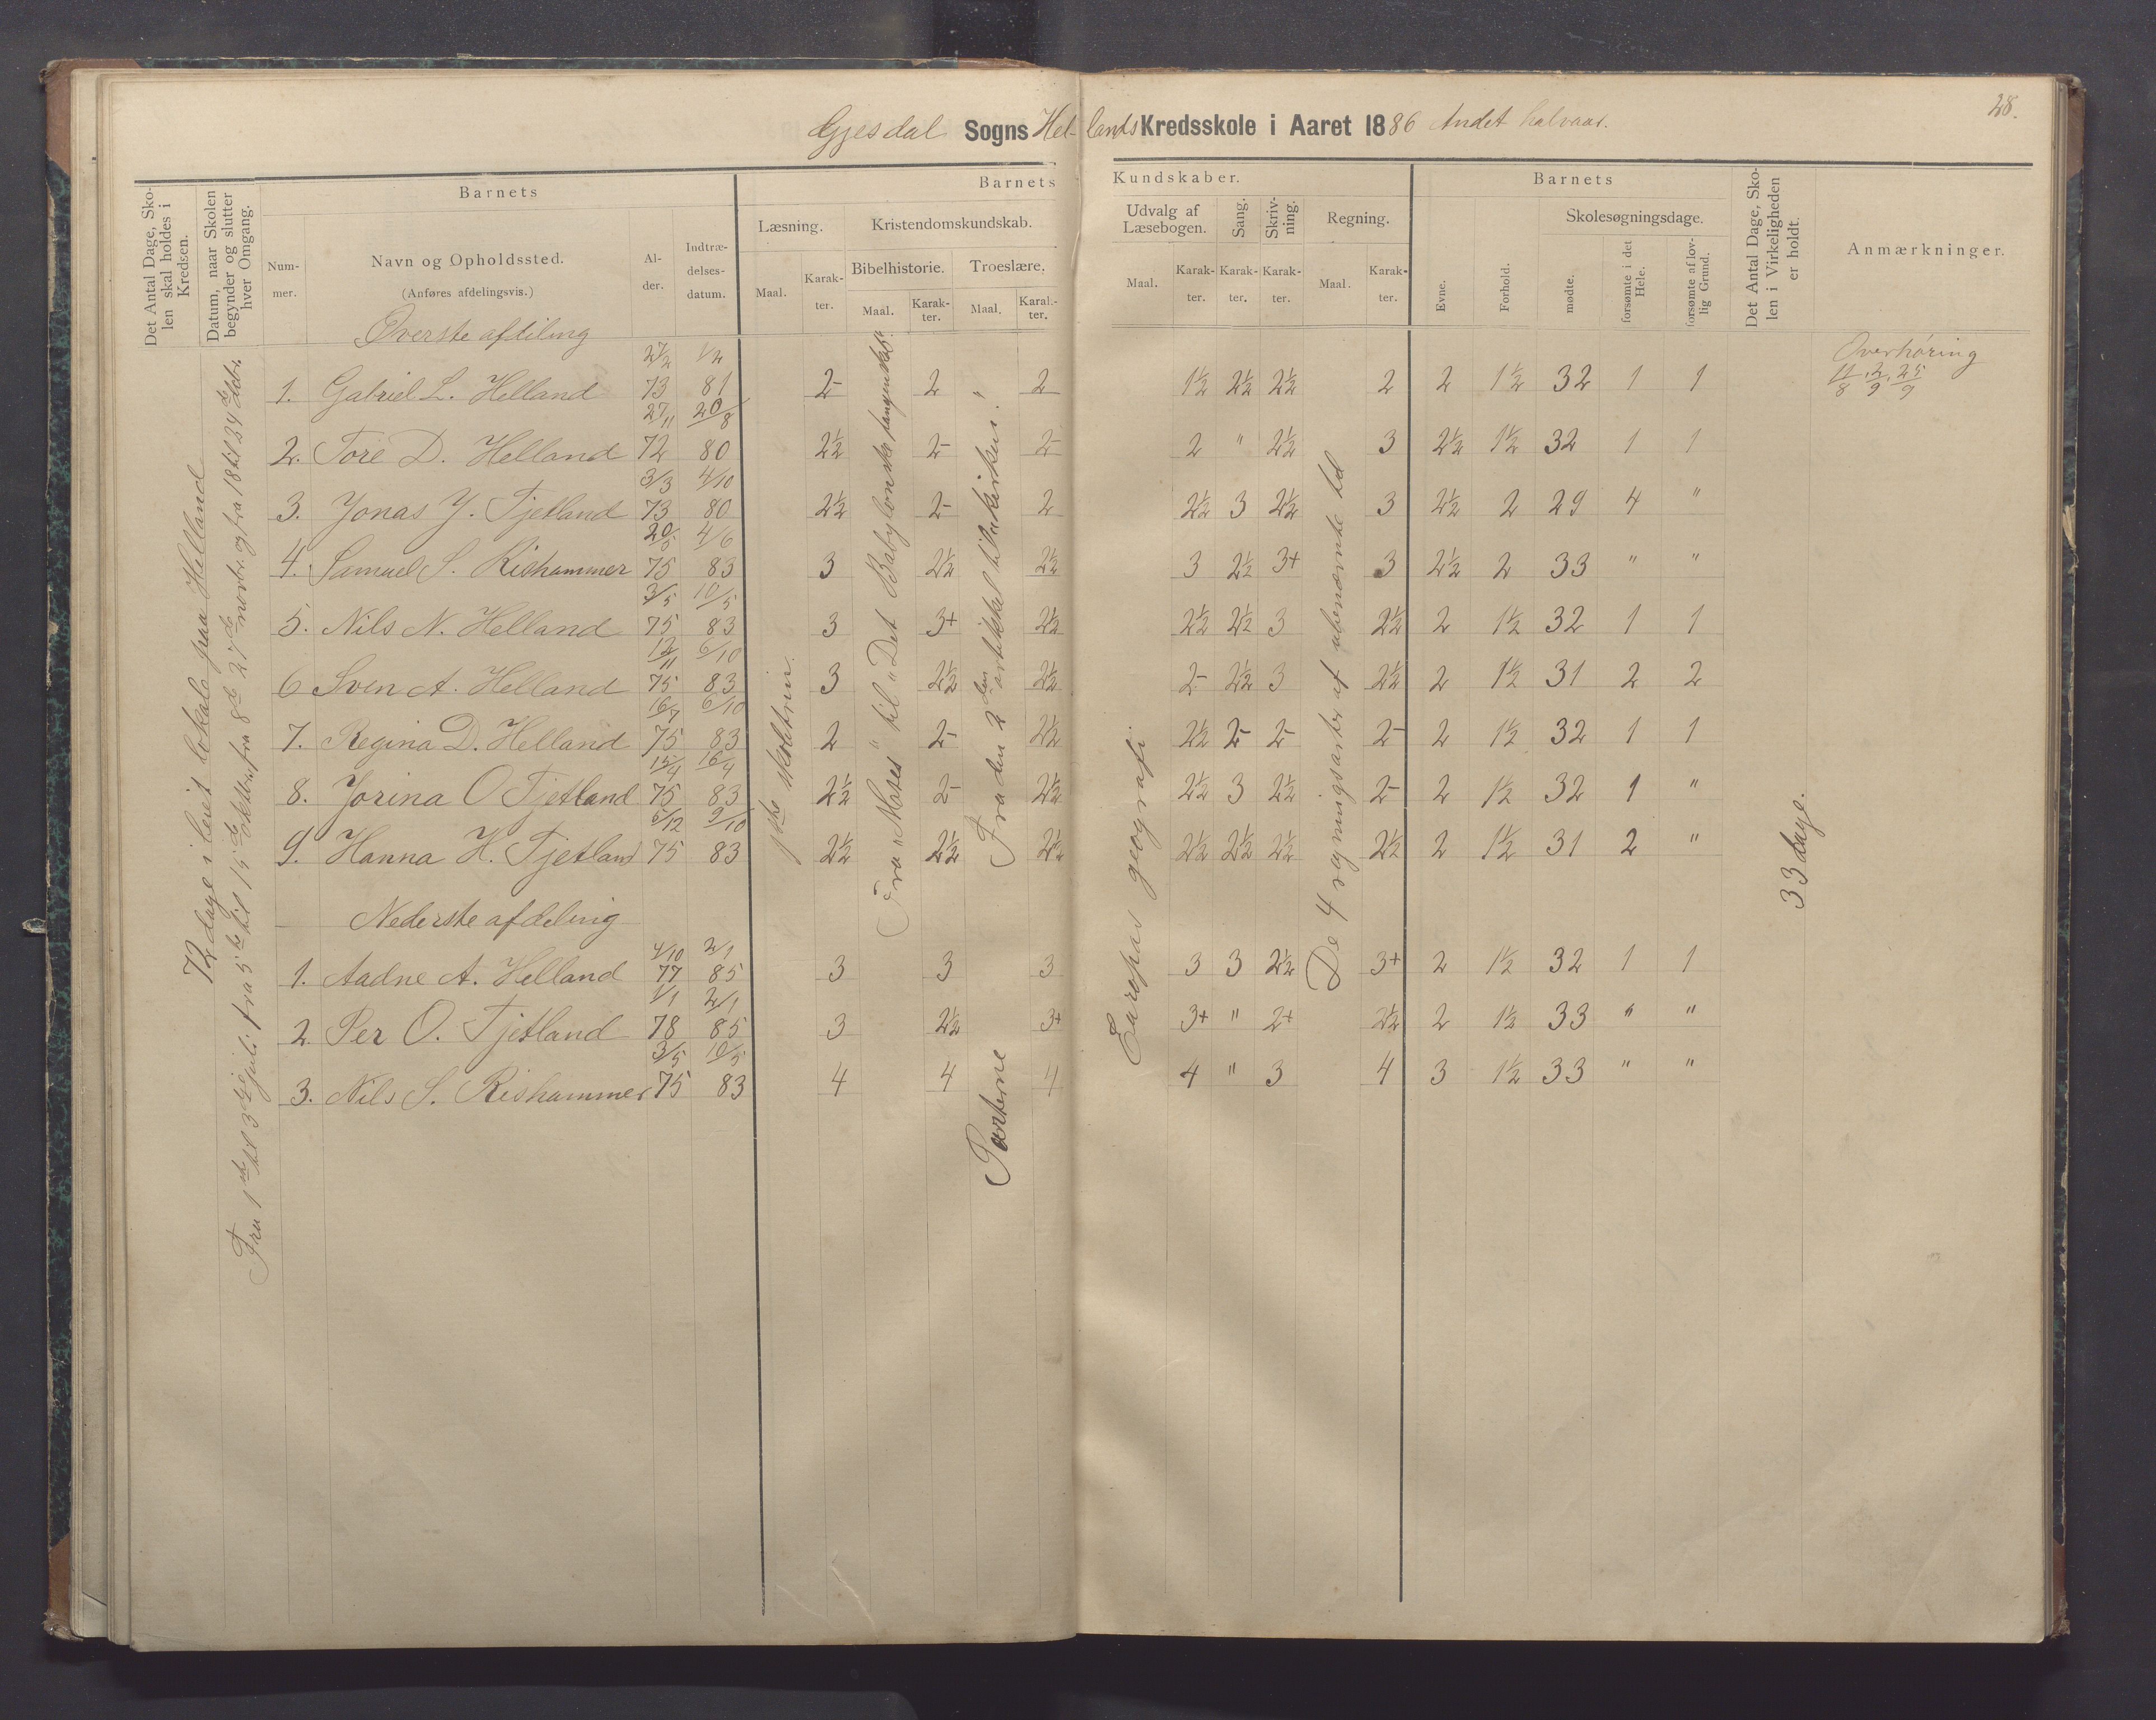 28.
Gjesdal Sogns Hellands Kredsskole i Aaret 1886 Andet halvaar.
Det Antal Dage, Sko-
len skal holdes i
Kredsen.
Datum, naar Skolen
begynder og slutter
hver Omgang.
Barnets
Num-
mer.
Navn og Opholdssted.
(Anføres afdelingsvis.)
Al-
der.
Indtræ-
delses-
datum.
Barnets Kundskaber.
Læsning.
Maal.
Karak-
ter.
Kristendomskundskab.
Bibelhistorie.
Maal.
Karak-
ter.
Troeslære.
Maal.
Karak-
ter.
Udvalg af
Læsebogen.
Maal.
Karak-
ter.
Sang.
Karak-
ter.
Skriv-
ning.
Karak-
ter.
Regning.
Maal.
Karak-
ter.
Barnets
Evne.
Forhold.
Skolesøgningsdage.
mødte.
forsømte i det
Hele.
forsømte af lov-
lig Grund.
Det Antal Dage, Sko-
len i Virkeligheden
er holdt.
Anmærkninger.
Øverste afdeling
Overhøring
11/8, 2/9, 25/9
1. Gabriel L. Helland 27/2 73 1/2 81 2- 2 " 2 1½ 2½ 2½ 2 2 1½ 32 1 1
2. Tore D. Helland 27/11 72 20/8 80 2½ 2- 2- 2 " 2½ 3 2½ 1½ 32 1 1
3. Jonas J. Tjetland 3/3 73 4/10 80 2½ 2- 2 2½ 3 2½ 3 2½ 2 29 4 "
4. Samuel S. Rishammer 20/5 75 4/6 83 3 2½ 2½ 3 2½ 3+ 3 2½ 2 33 " "
5. Nils N. Helland 3/5 75 10/5 83 3 3+ 2½ 2½ 2½ 3 2½ 2 1½ 32 1 1
6 Sven A. Helland 12/11 75 6/10 83 3 2½ 2½ 2- 2½ 3 2½ 2 1½ 31 2 2
7. Regina D. Helland 16/7 75 6/10 83 2 2- 2½ 2½ 2- 2- 2- 2 1½ 32 1 1
8. Jorina O Tjetland 15/4 75 16/4 83 2½ 2- 2½ 2½ 3 2½ 2- 2 1½ 32 1 "
9. Hanna H. Tjetland 6/12 75 9/10 83 2½ 2½ 2½ 2½ 2½ 2½ 2½ 2 1½ 31 2 "
Nederste afdeling
1. Aadne A. Helland 4/10 77 2/1 85 3 3 3 3 3 2½ 3+ 2 1½ 32 1 1
2. Per O. Tjetland 1/1 78 2/1 85 3 2½ 3+ 3+ " 2+ 2½ 2 1½ 33 " "
3. Nils S. Rishammer 3/5 75 10/5 83 4 4 4 4 " 3 4 3 1½ 33 " "
72 dage i leiet lokale paa Helland
Fra 1ste til 3dje juli, fra 5te til 15de oktbr, fra 8de 27de novbr. og fra 18 til 24de
Fra "Moses" til "Det Babylonske fangenskab"
Fra den 2den artikkel til
Parterne
Europas geografi
De 4 regningsarter af ubenævnte tal
33 dage.